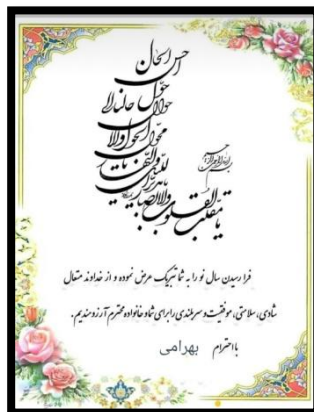 بسم الله الرحمن الرحیم
یا مقلب القلوب والابصار
یا مدبر اللیل والنهار
یا محول الحول والاحوال
حول حالنا الی
احسن الحال
فرا رسیدن سال نو را به شما تبریک عرض نموده و از خداوند متعال
شادی، سلامتی، موفقیت و سربلندی را برای شما و خانواده محترم آرزومندیم.
با احترام بهرامی